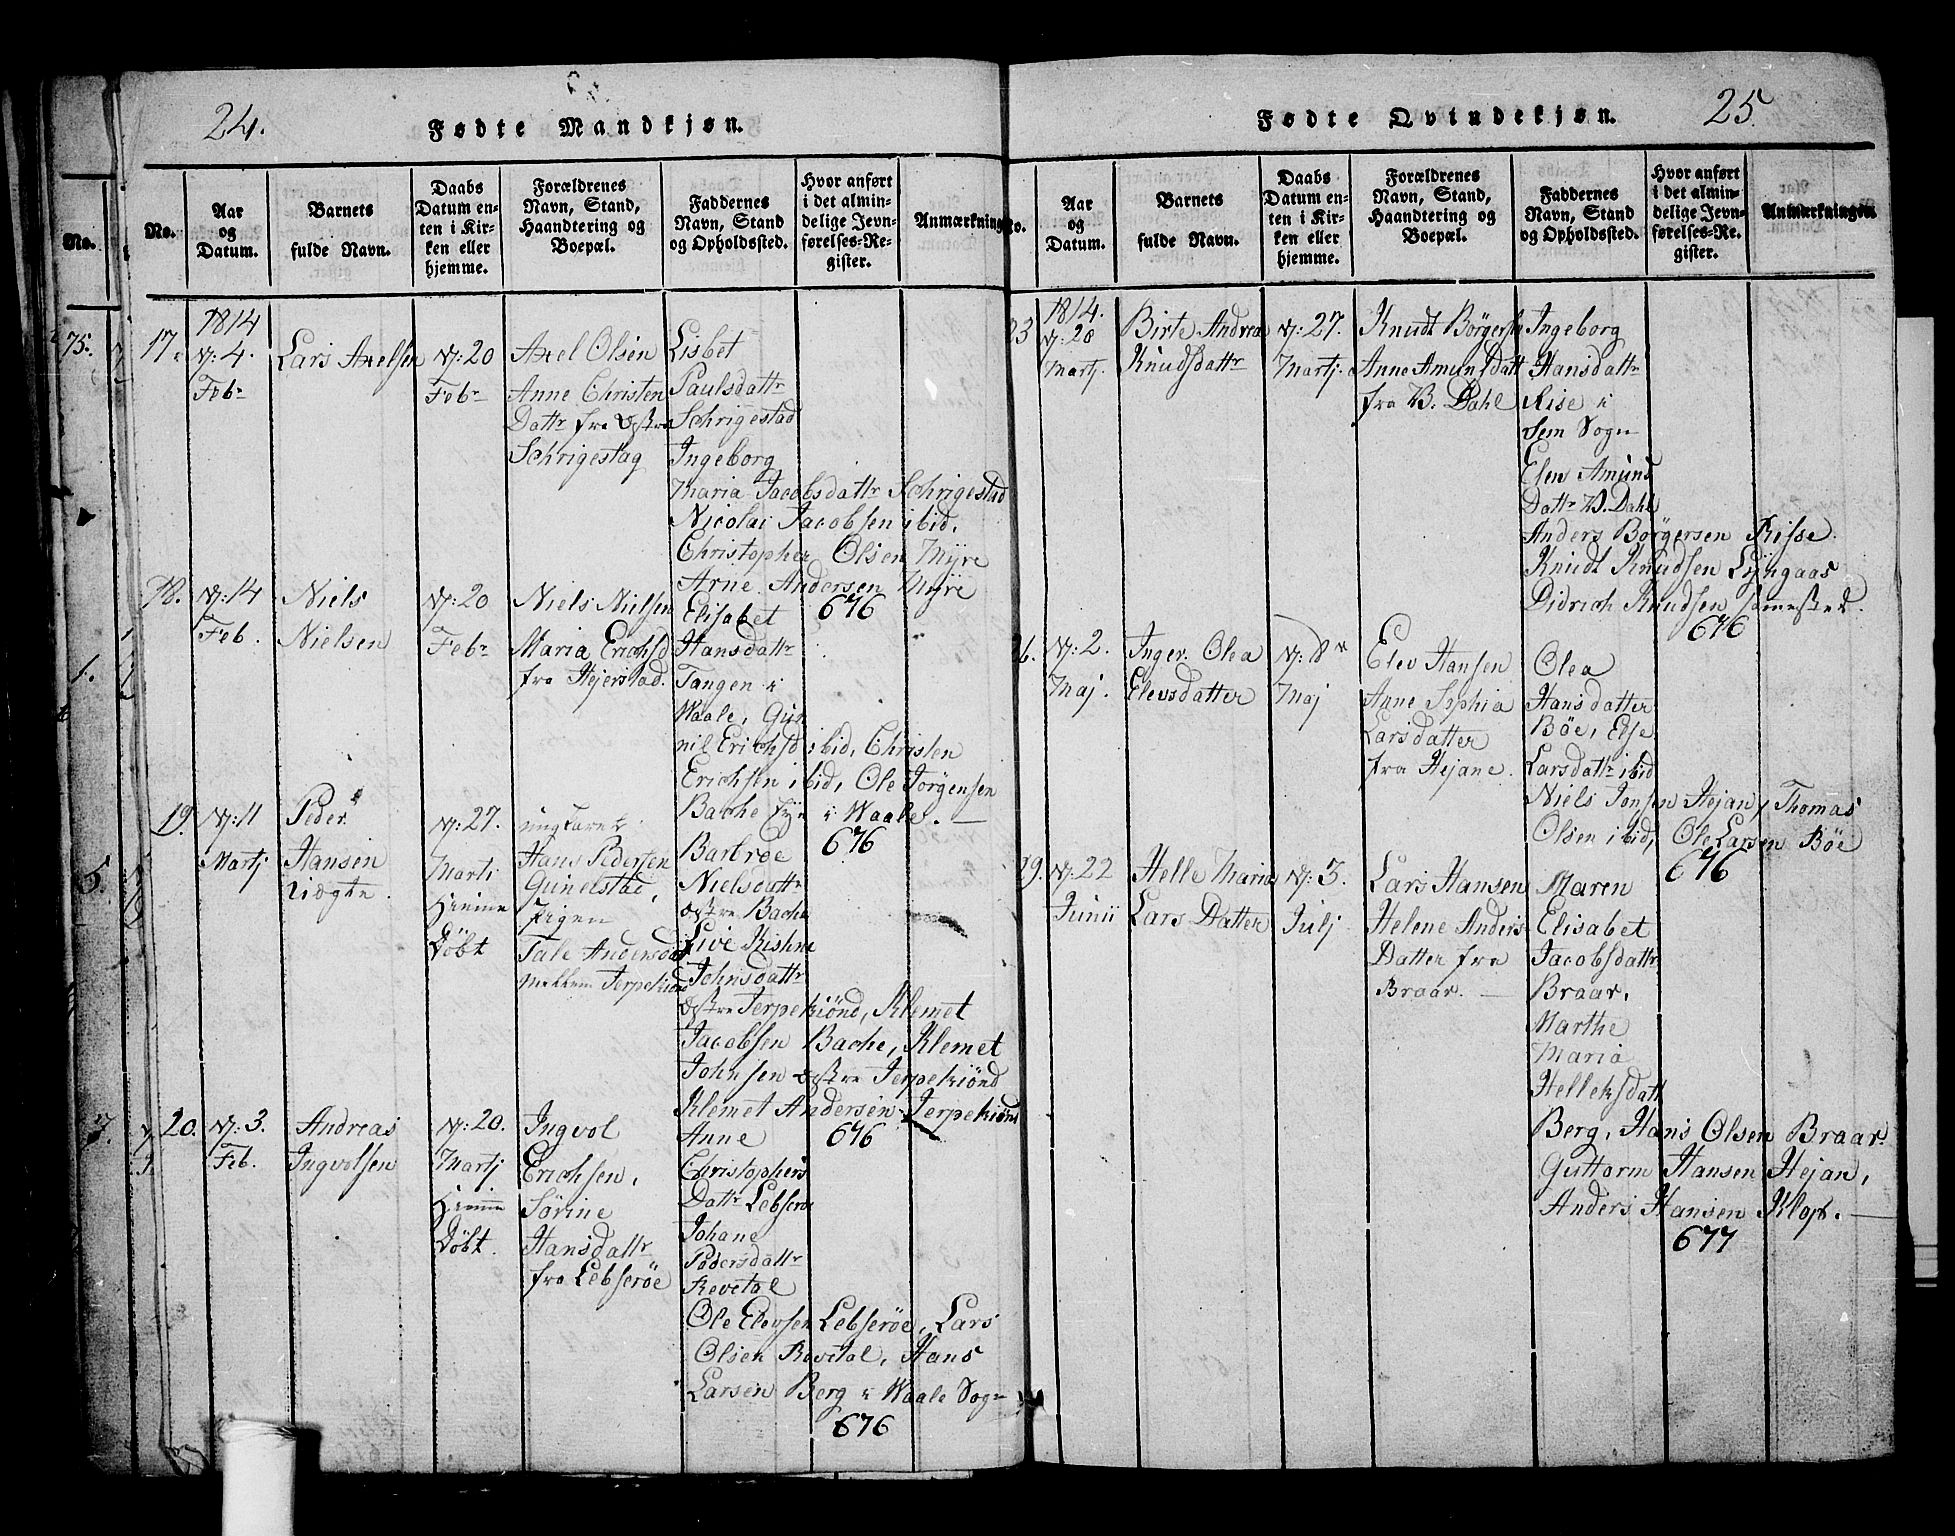 24.
Fødte Mandkjøn.
No.
Aar og Datum.
Barnets fulde Navn.
Daabs Datum enten i Kirken eller hjemme.
Forældrenes Navn, Stand, Haandtering og Boepæl.
Faddernes Navn, Stand og Opholdssted.
Hvor anført i det almindelige Jevnførelses-Register.
Anmærkning
17.
1814
N: 4.
Febr
Lars Axelsen
N: 20
Febr
Axel Olsen
Anne Christen
Dattr fra østre
Schrigestag
Lisbet
Paulsdattr
Schrigestad
Ingeborg
Maria Jacobsdattr Schrigestad
Nicolai Jacobsen ibid.
Christopher Olsen Myre
Arne Andersen Myre
676
18.
N: 14
Feb.
Niels
Nielsen
N: 20
Febr
Niels Nielsen
Maria Erichsd
fra Hejerstad.
Elisabet
Hansdattr
Tangen i
Waale, Gun
nil Erichsd ibid, Christen
Erichsen ibid, Ole Jörgensen
Bache Eje i Waale.
676
19.
N: 11
Martj
Peder
Hansen
uægte.
N: 27.
Marti
Hiemme
Döbt
ungkarel
Hans Pedersen
Gunelstad,
Pigen
Tale Andersdat
mellem Terpekiönd
Barbroe
Nielsdattr
østre Bache
Live Kistine
Johnsdattr
østre Terpekiönd, Klemet
Jacobsen Bache, Klemet
Johnsen østre Terpekiönd
Klemet Andersen Terpekiönd
676
20.
N: 3.
Feb.
Andreas
Ingvolsen
N: 20.
Martj
Hiemme
Döbt.
Ingvol
Erichsen,
Sörine
Hansdattr
fra Lebseröe
Anne
Christophers
Dattr Lebseröe
Johane
Pedersdattr
Revetal
Ole Elevsen Lebseröe, Lars
Olsen Revetal, Hans
Larsen Berg i Waale Sogn
676
25.
Fødte Qvindekjøn.
No.
Aar og Datum.
Barnets fulde Navn.
Daabs Datum enten i Kirken eller hjemme.
Forældrenes Navn, Stand, Haandtering og Boepæl.
Faddernes Navn, Stand og Opholdssted.
Hvor anført i det almindelige Jevnførelses-Register.
Anmærkninger.
23
1814.
N: 20
Martj.
Birte Andrea
Knudsdattr
N: 27.
Martj.
Knudt Börgersen
Anne Amundsdatt
fra V. Dahl
Ingeborg
Hansdattr
Rise i
Sem Sogn
Elen Amund
Dattr V. Dahl
Anders Börgersen Risse.
Knudt Knudsen Lyngaas
Didrich Knudsen samested.
676
26.
N: 2.
Maj.
Inger Olea
Elevsdatter
N: 8
Maj
Elev Hansen
Anne Sophia
Larsdatter
fra Hejane.
Olea
Hansdatter
Böe, Else
Larsdattr ibid
Niels Jonsen Hejan, Thomas
Olsen ibid, Ole Larsen Böe
676
29.
N: 22
Junii
Helle Maria
Lars Datter
N: 3.
Julj
Lars Hansen
Helene Anders
Datter fra
Braar.
Maren
Elisabet
Jacobsdattr
Braar,
Marthe
Maria
Helleksdatt
Berg, Hans Olsen Braar.
Guttorm Hansen Hejan,
Anders Hansen Klop.
677
No.
75.
1.
5.
7.